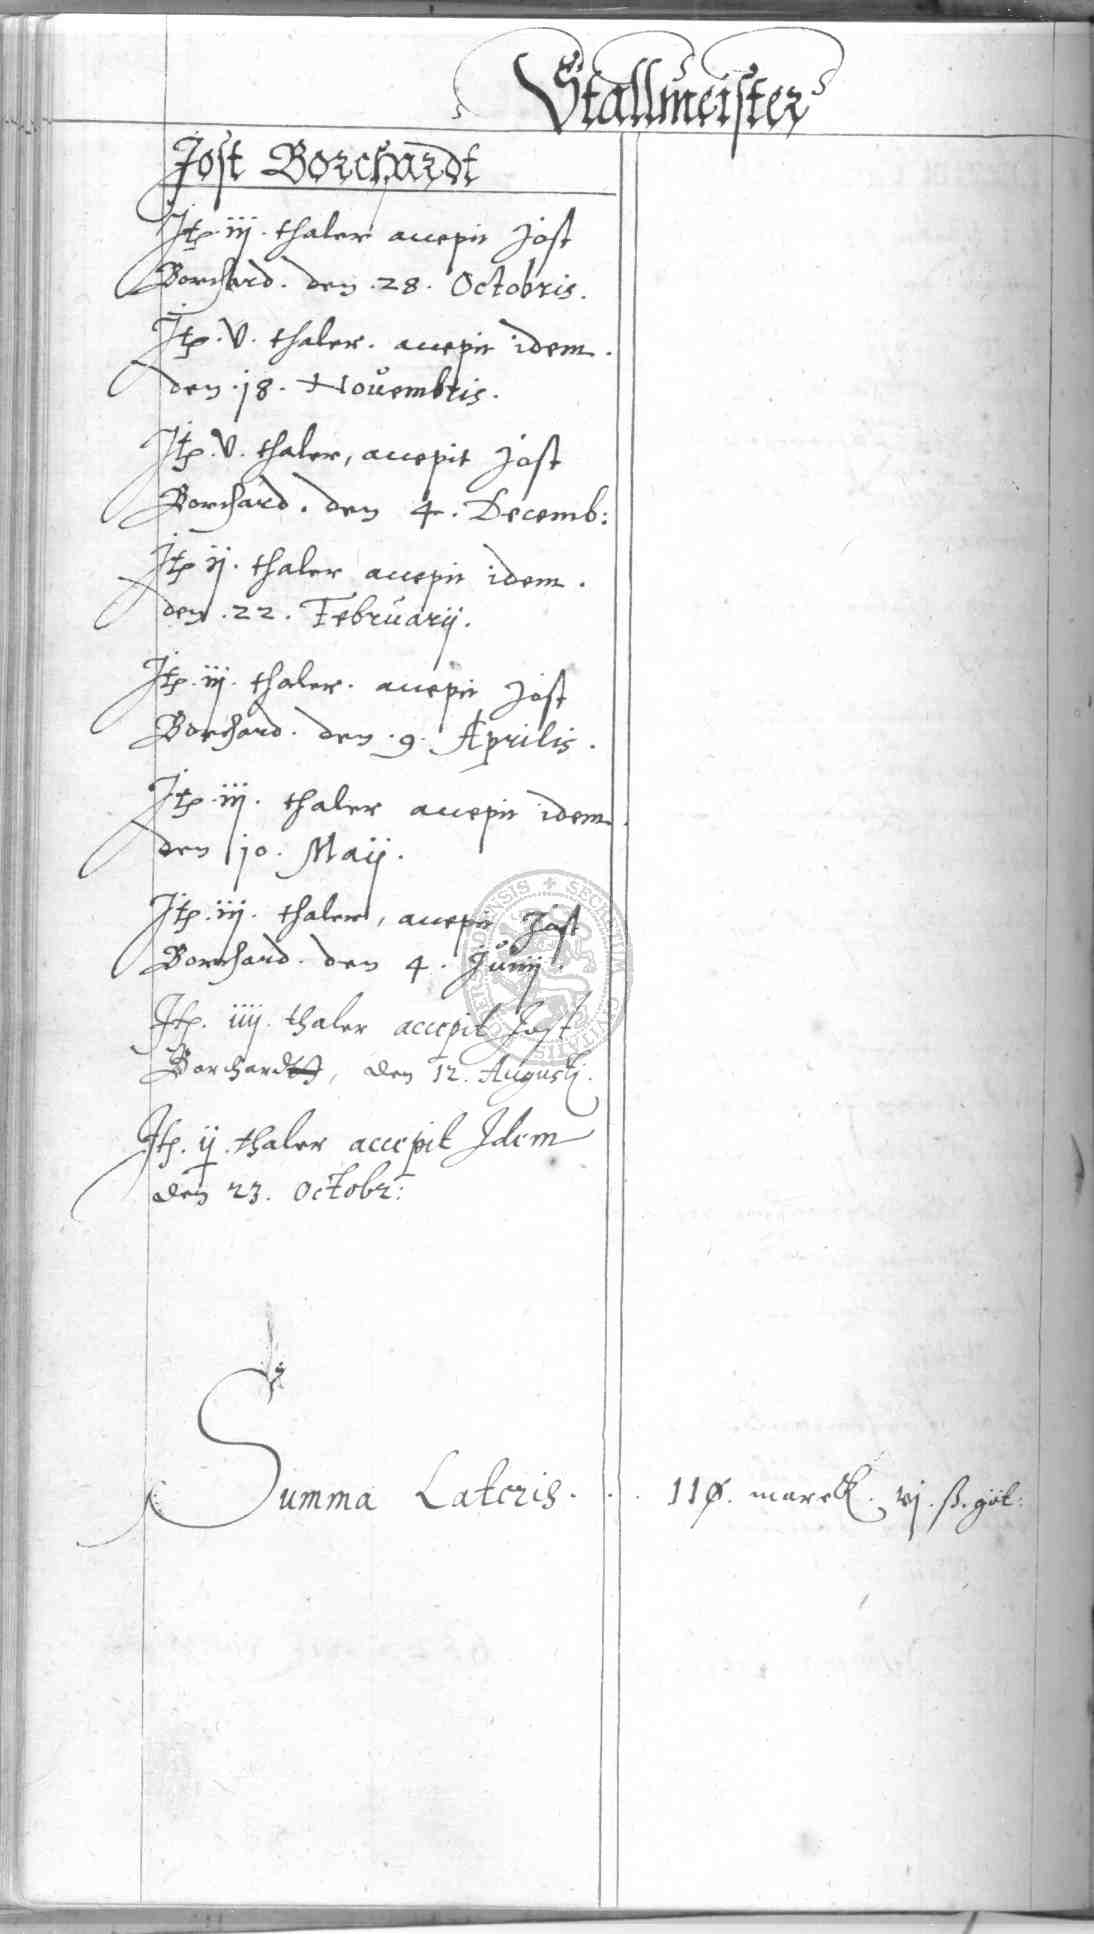 Stallmeister
Jost Borchardt
Jtem iij thaler accepit Jost
Borchard. den .28. Octobris.
Jtem .v. thaler. accepit idem.
den .18. Novembris.
Jtem .v. thaler, accepit Jost
Borchard. den 4. Decemb:
Jtem ij. thaler accepit idem.
den .22. Februarij.
Jtem .iij. thaler. accepit Jost
Borchard. den .9. Aprilis.
Jtem .iij. thaler accepit idem.
den 10. Maij.
Jtem .iij. thaler, accepit Jost
Borchard. den 4. Junij.
Jtem. iiij. thaler accepit Jost
Borchardt, den 12. Augusti.
Jtem. ij. thaler accepit Idem
den 23. Octobr:
Summa Lateris. . . 110. marck. vj. ß. got: